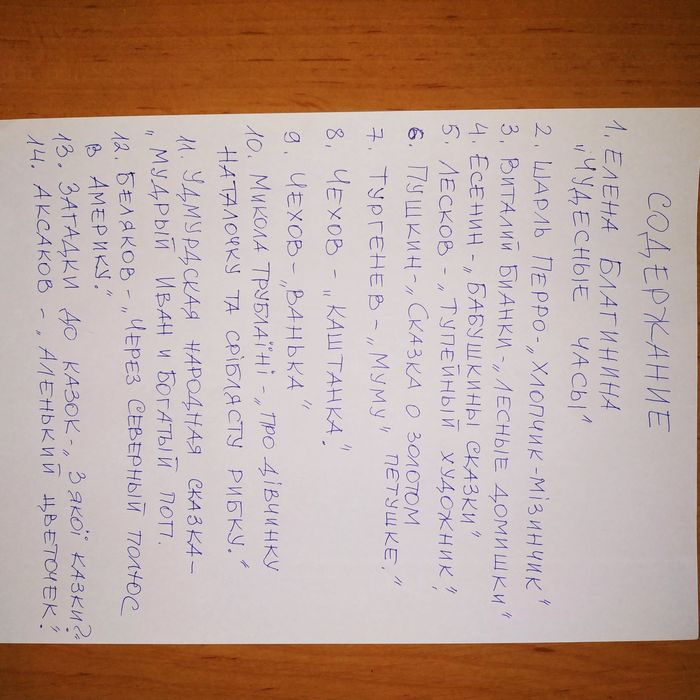 СОДЕРЖАНИЕ
1. ЕЛЕНА БЛАГИНИНА
„ЧУДЕСНЫЕ ЧАСЫ"
2. ШАРЛЬ ПЕРРО-„ХЛОПЧИК-МІЗИНЧИК"
3. ВИТАЛИЙ БИАНКИ-„ЛЕСНЫЕ ДОМИШКИ"
4. ЕСЕНИН-„БАБУШКИНЫ СКАЗКИ"
5. ЛЕСКОВ-„ТУПЕЙНЫЙ ХУДОЖНИК",
6. ПУШКИН-„СКАЗКА О ЗОЛОТОМ
ПЕТУШКЕ."
7. ТУРГЕНЕВ-„МУМУ"
8. ЧЕХОВ-„КАШТАНКА."
9. ЧЕХОВ-„ВАНЬКА"
10. МИКОЛА ТРУБЛАЇНІ-„ПРО ДІВЧИНКУ
НАТАЛОЧКУ ТА СРІБЛЯСТУ РИБКУ."
11. УДМУРДСКАЯ НАРОДНАЯ СКАЗКА-
„МУДРЫЙ ИВАН И БОГАТЫЙ ПОП.
12. БЕЛЯКОВ-„ЧЕРЕЗ СЕВЕРНЫЙ ПОЛЮС
В АМЕРИКУ."
13. ЗАГАДКИ ДО КАЗОК-„З ЯКОЇ КАЗКИ?"
14. АКСАКОВ-„АЛЕНЬКИЙ ЦВЕТОЧЕК."